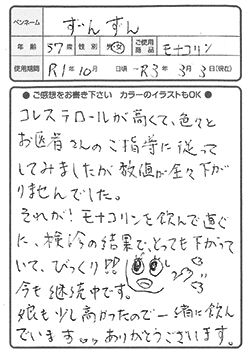 ペンネーム ずんずん
年齢 57歳 性別 男・女 ご使用商品 モナコリン
使用期間 R1年10月 日頃 ～ R3年3月3日(現在)
● ご感想をお書き下さい カラーのイラストもOK ●
コレステロールが高くて、色々と
お医者さんのご指導に従って
してみましたが数値が全々下が
りませんでした。
それが！モナコリンを飲んで直ぐ
に、検診の結果で、とっても下がって
いて、びっくり!!
今も継続中です。
娘も少し高かったので一緒に飲ん
でいます。 ありがとうございます。